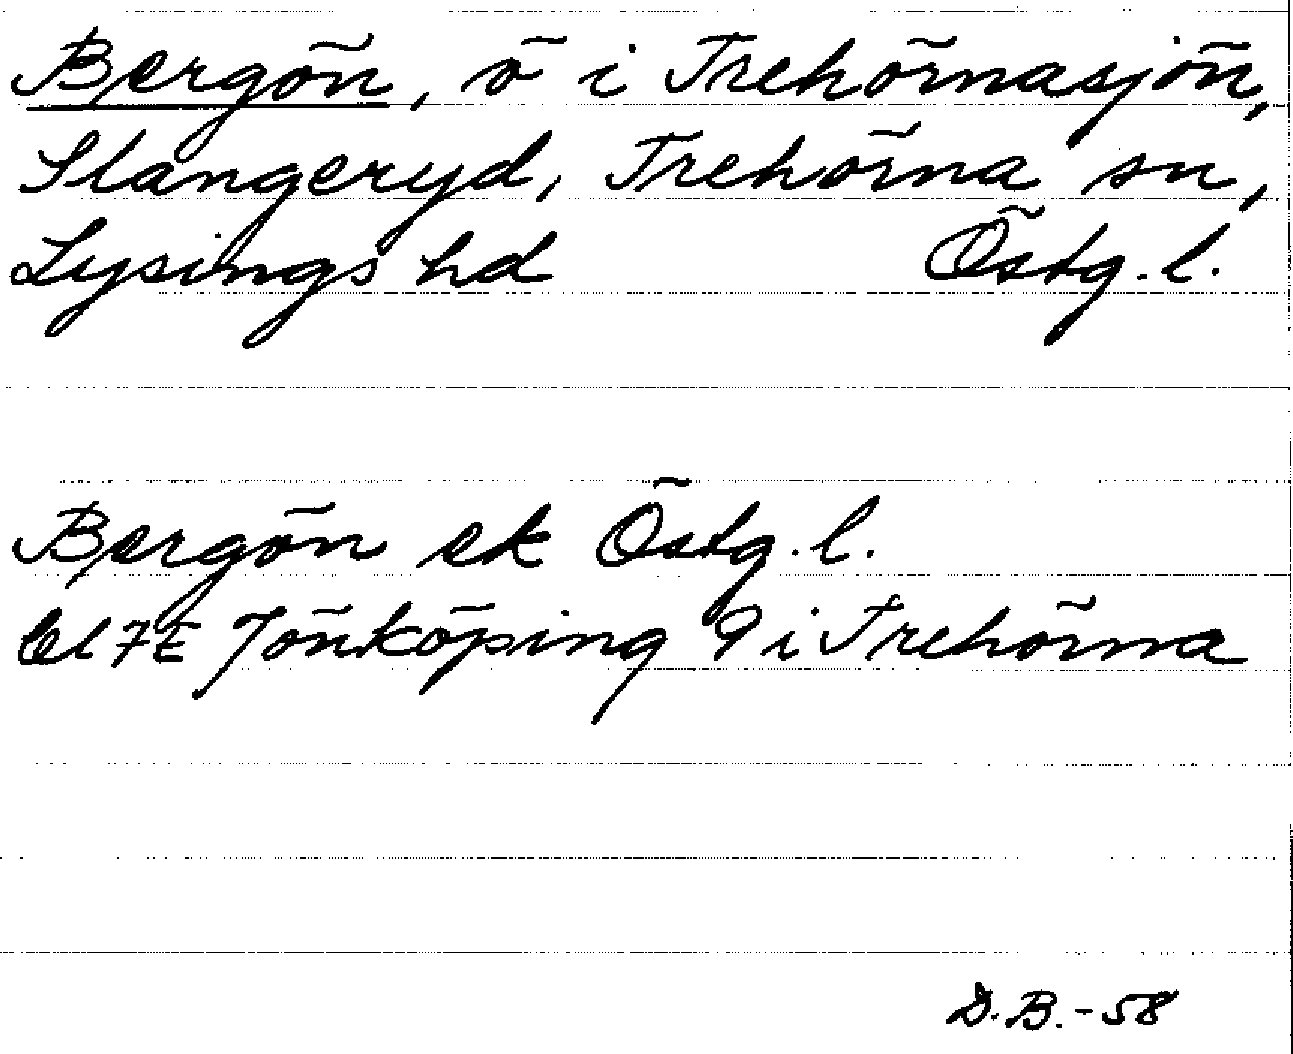 Bergön, ö i Trehörnasjön,
Slangeryd, Trehörna sn,
Lysings hd Östg. l.
Bergön ek Östg. l.
bl 7E Jönköping 9 i Trehörna
D.B.-58